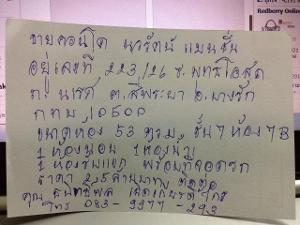 ขายคอนโด นวรัตน์ แมนชั่น
อยู่เลขที่ 223/26 ซ. พุทธโอสถ
ถ. นเรศ ต.สี่พระยา อ.บางรัก
กทม 10500
ขนาดห้อง 53 ตรม. ชั้น 7 ห้อง 7B
1 ห้องนอน 1 ห้องน้ำ
1 ห้องรับแขก พร้อมที่จอดรถ
ราคา 2.5 ล้านบาท ติดต่อ
คุณ
โทร 083-9977-293
Redberry Onlin